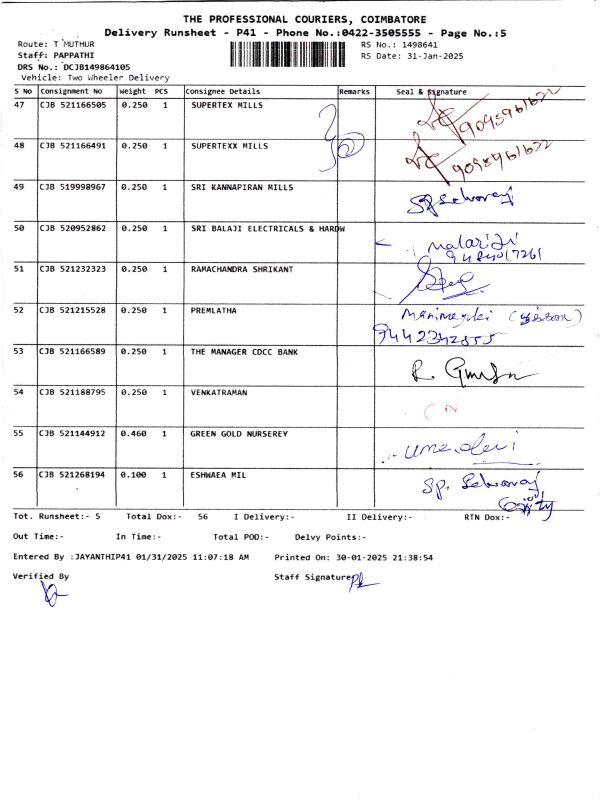 THE PROFESSIONAL COURIERS, COIMBATORE
Delivery Runsheet - P41 - Phone No.:0422-3505555 - Page No.:5
Route: T MUTHUR RS No.: 1498641
Staff: PAPPATHI RS Date: 31-Jan-2025
DRS No.: DCJB149864105
Vehicle: Two Wheeler Delivery
S No Consignment No Weight PCS Consignee Details Remarks Seal & Signature
47 CJB 521166505 0.250 1 SUPERTEX MILLS
48 CJB 521166491 0.250 1 SUPERTEXX MILLS
49 CJB 519998967 0.250 1 SRI KANNAPIRAN MILLS
50 CJB 520952862 0.250 1 SRI BALAJI ELECTRICALS & HARDW
51 CJB 521232323 0.250 1 RAMACHANDRA SHRIKANT
52 CJB 521215528 0.250 1 PREMLATHA
53 CJB 521166589 0.250 1 THE MANAGER CDCC BANK
54 CJB 521188795 0.250 1 VENKATRAMAN
55 CJB 521144912 0.460 1 GREEN GOLD NURSEREY
56 CJB 521268194 0.100 1 ESHWAEA MIL Sp.
Tot. Runsheet:- 5 Total Dox:- 56 I Delivery:- II Delivery:- RTN Dox:-
Out Time:- In Time:- Total POD:- Delvy Points:-
Entered By :JAYANTHIP41 01/31/2025 11:07:18 AM Printed On: 30-01-2025 21:38:54
Verified By Staff Signature